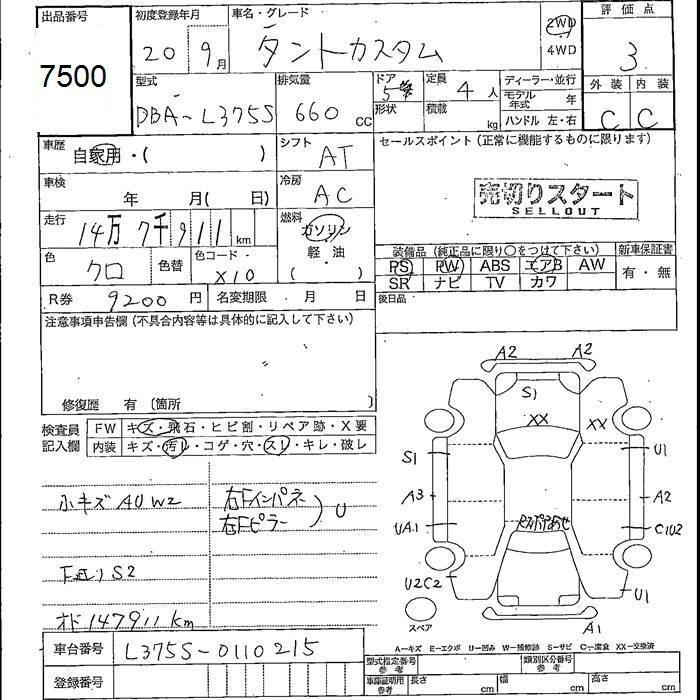 出品番号
7500
初度登録年月
20 9月
車名・グレード
タントカスタム
2WD
4WD
評価点
3
外装 内装
C C
型式
DBA-L375S
排気量
660 cc
ドア
5
形状
定員
4 人
積載
kg
ディーラー・並行
モデル年式 年
ハンドル 左・右
車歴
自家用・( )
シフト
AT
セールスポイント(正常に機能するものに限ります)
売切りスタート
SELLOUT
車検
年 月( 日)
冷房
AC
走行
14万7千911km
燃料
ガソリン
軽油
( )
色
クロ
色替
色コード
X10
装備品(純正品に限り○をつけて下さい)
PS PW ABS エアB AW
SR ナビ TV カワ
新車保証書
有・無
R券 9200円
名変期限 月 日
後日品
注意事項申告欄(不具合内容等は具体的に記入して下さい)
修復歴 有〔箇所 〕
検査員記入欄
FW キズ・飛石・ヒビ割・リペア跡・X要
内装 キズ・汚レ・コゲ・穴・スレ・キレ・破レ
小キズ AU W2
右Fインパネ
右Fピラー
U
S2
オド 147911km
A2 A2
S1
XX XX
S1 U1
A3 A2
UA1 C1U2
U2C2 U1
A1
スペア
A-キズ E-エクボ U-凹み W-補修跡 S-サビ C-腐食 XX-交換済
車台番号
L375S-0110215
登録番号
型式指定番号 参考
類別区分番号 参考
車庫証明用 参考
長さ cm
幅 cm
高さ cm